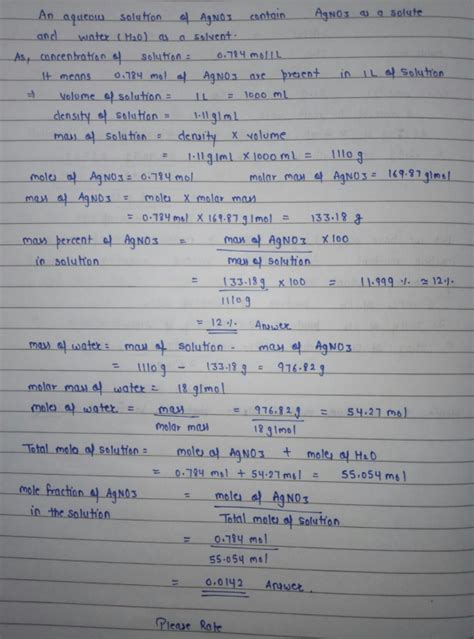 An aqueous solution of AgNO3 contain AgNO3 as a solute
and water (H2O) as a solvent.
As, concentration of solution = 0.784 mol/L
It means 0.784 mol of AgNO3 are present in 1L of solution
⇒ volume of solution = 1L = 1000 ml
density of solution = 1.11 g/ml
mass of solution = density × volume
= 1.11 g/ml × 1000 ml = 1110 g
moles of AgNO3 = 0.784 mol molar mass of AgNO3 = 169.87 g/mol
mass of AgNO3 = moles × molar mass
= 0.784 mol × 169.87 g/mol = 133.18 g
mass percent of AgNO3 = mass of AgNO3 × 100
in solution mass of solution
= 133.18g × 100 = 11.999 % ≃ 12%
1110 g
= 12 % Answer
mass of water = mass of solution - mass of AgNO3
= 1110 g - 133.18 g = 976.82 g
molar mass of water = 18 g/mol
moles of water = mass = 976.82g = 54.27 mol
molar mass 18 g/mol
Total moles of solution = moles of AgNO3 + moles of H2O
= 0.784 mol + 54.27 mol = 55.054 mol
mole fraction of AgNO3 = moles of AgNO3
in the solution Total moles of solution
= 0.784 mol
55.054 mol
= 0.0142 Answer
Please Rate